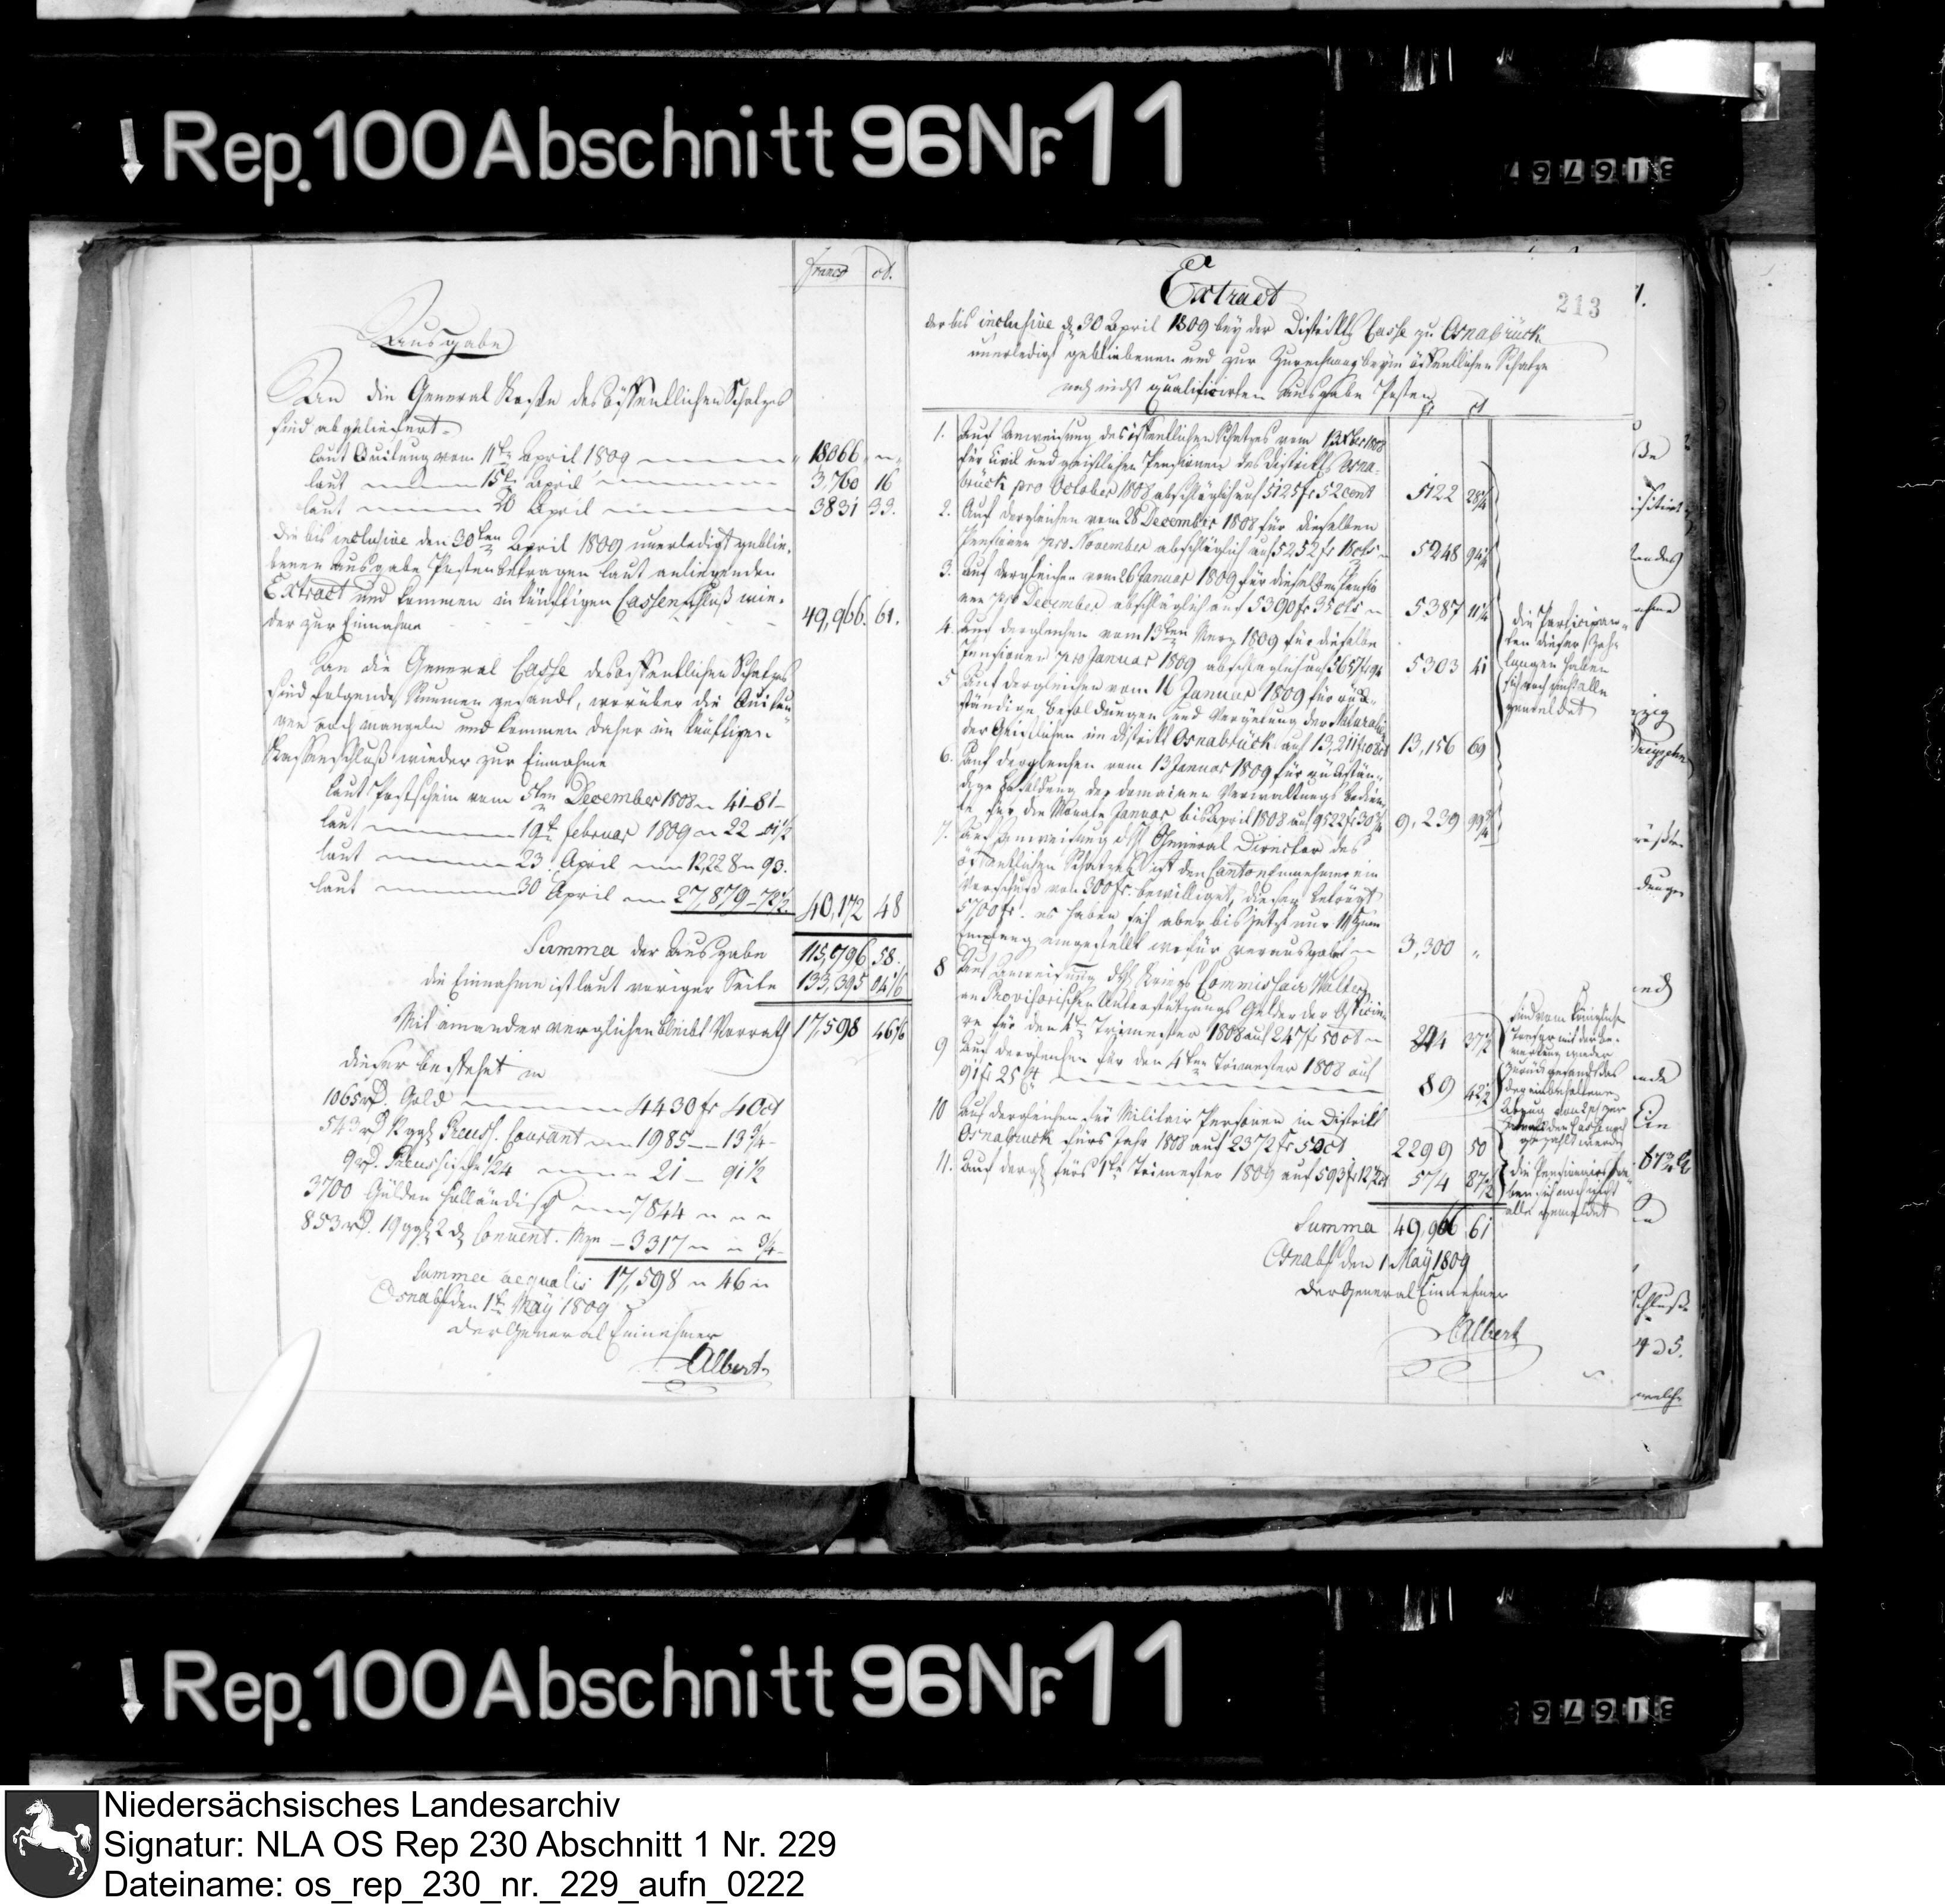 Rep. 100 Abschnitt 96 Nr. 11
31679
francs ct.
Ausgabe
An die General Casse des öffentlichen Schatzes
sind abgeliefert.
laut Quitung vom 11ten April 1809 18066 "
laut 15ten April 3760 16
laut 20 April 3831 33.
Die bis inclusive den 30ten April 1809 unerledigt geblie-
benen Ausgabe Posten betragen laut anliegenden
Extract und kommen im künftigen Cassenschluß wie-
der zur Einnahme 49,966. 61.
An die General Casse des öffentlichen Schatzes
sind folgende Summen gesandt, worüber die Quitun-
gen noch mangeln und kommen daher im künftigen
Cassenschluß wieder zur Einnahme
laut Postschein vom 5ten December 1808 41-81-
laut 19t februar 1809 22 -01 1/2
laut 23 April 12,228 93.
laut 30 April 27,879-72 1/2 40,172 48
Summa der Ausgabe 115,796 58.
die Einnahme ist laut voriger Seite 133,395 04 1/6
Mit einander verglichen bleibt Vorrath 17,598 46 1/6
dieser bestehet in
1065 rth. Gold 4430 fr 40 ct
543 rth 12 ggl Preuss. Courant 1985 - 13 3/4
9 rth. Preussische 1/24 21 - 91 1/2
3700 Gulden holländisch 7844
853 rth. 19 ggl 2 d Convent. Mzn - 3317 " " 3/4
Summa aequalis 17,598 " 46 "
Osnab den 1t May 1809
der General Einnehmer
Albert
213
Extract
der bis inclusive d 30 April 1809 bey der Districts Casse zu Osnabrück
unerledigt gebliebenen und zur Zurechnung beym öffentlichen Schatze
noch nicht qualificirten Ausgabe Posten
fr ct
1. Auf Anweisung des öffentlichen Schatzes vom 13 Xber 1808
für Civil und geistlichen Pensionen des Districts Osna-
brück pro October 1808 abschläglich auf 5125 fr 52 cent 5122 28 3/4
2. Auf dergleichen vom 28 December 1808 für dieselben
Pensionen pro November abschläglich auf 5252 fr 18 cts 5248 94 1/2
3. Auf dergleichen vom 26 Januar 1809 für dieselben Pensio
nen pro December abschläglich auf 5390 fr 35 cts 5387 11 1/4
4. Auf dergleichen vom 13ten Merz 1809 für dieselbe
Pensionen pro Januar 1809 abschläglich auf 5657 fr 94 5303 41
5 Auf dergleichen vom 16 Januar 1809 für rück-
ständige Besoldungen und Vergütung der Naturalien
der Geistlichen im District Osnabrück auf 13,211 fr 13,156 69
6. Auf dergleichen vom 13 Januar 1809 für rückstän-
dige Besoldung der Domainen Verwaltungs Bedien-
te für die Monate Januar bis April 1808 auf 9522 fr 30 3/4 9,239 99 3/4
7. Auf Anweisung des General Director des
öffentlichen Schatzes ist den Canton Einnehmer ein
Vorschuß von 300 fr. bewilliget, dieser beträgt
5700 fr. es haben sich aber bis jetzt nur 11 zum
Empfang eingestellt wofür verausgabt 3,300 "
8 Auf Anweisung des Kriegs Commissair Walter
an Provisorischen Unterstützungs Gelder der Officie-
re für den Trimester 1808 auf 247 fr 50 ct 244 37 1/2
9 Auf dergleichen für den 4ten Trimester 1808 auf
91 fr 25 ct 89 42 1/2
10 Auf dergleichen für Militair Personen im District
Osnabruck fürs Jahr 1808 auf 2372 fr 50 ct 2299 50
11. Auf dergl. fürs 1te Trimester 1809 auf 593 fr 12 1/2 ct 574 87 1/2
die Participan-
ten dieser Zah-
lungen haben
sich noch nicht alle
gemeldet
die Pensionairs ha-
ben sich noch nicht
alle gemeldet
Summa 49,966 61
Osnab den 1 May 1809
der General Einnehmer
Albert
Rep. 100 Abschnitt 96 Nr. 11
31679
Niedersächsisches Landesarchiv
Signatur: NLA OS Rep 230 Abschnitt 1 Nr. 229
Dateiname: os_rep_230_nr._229_aufn_0222